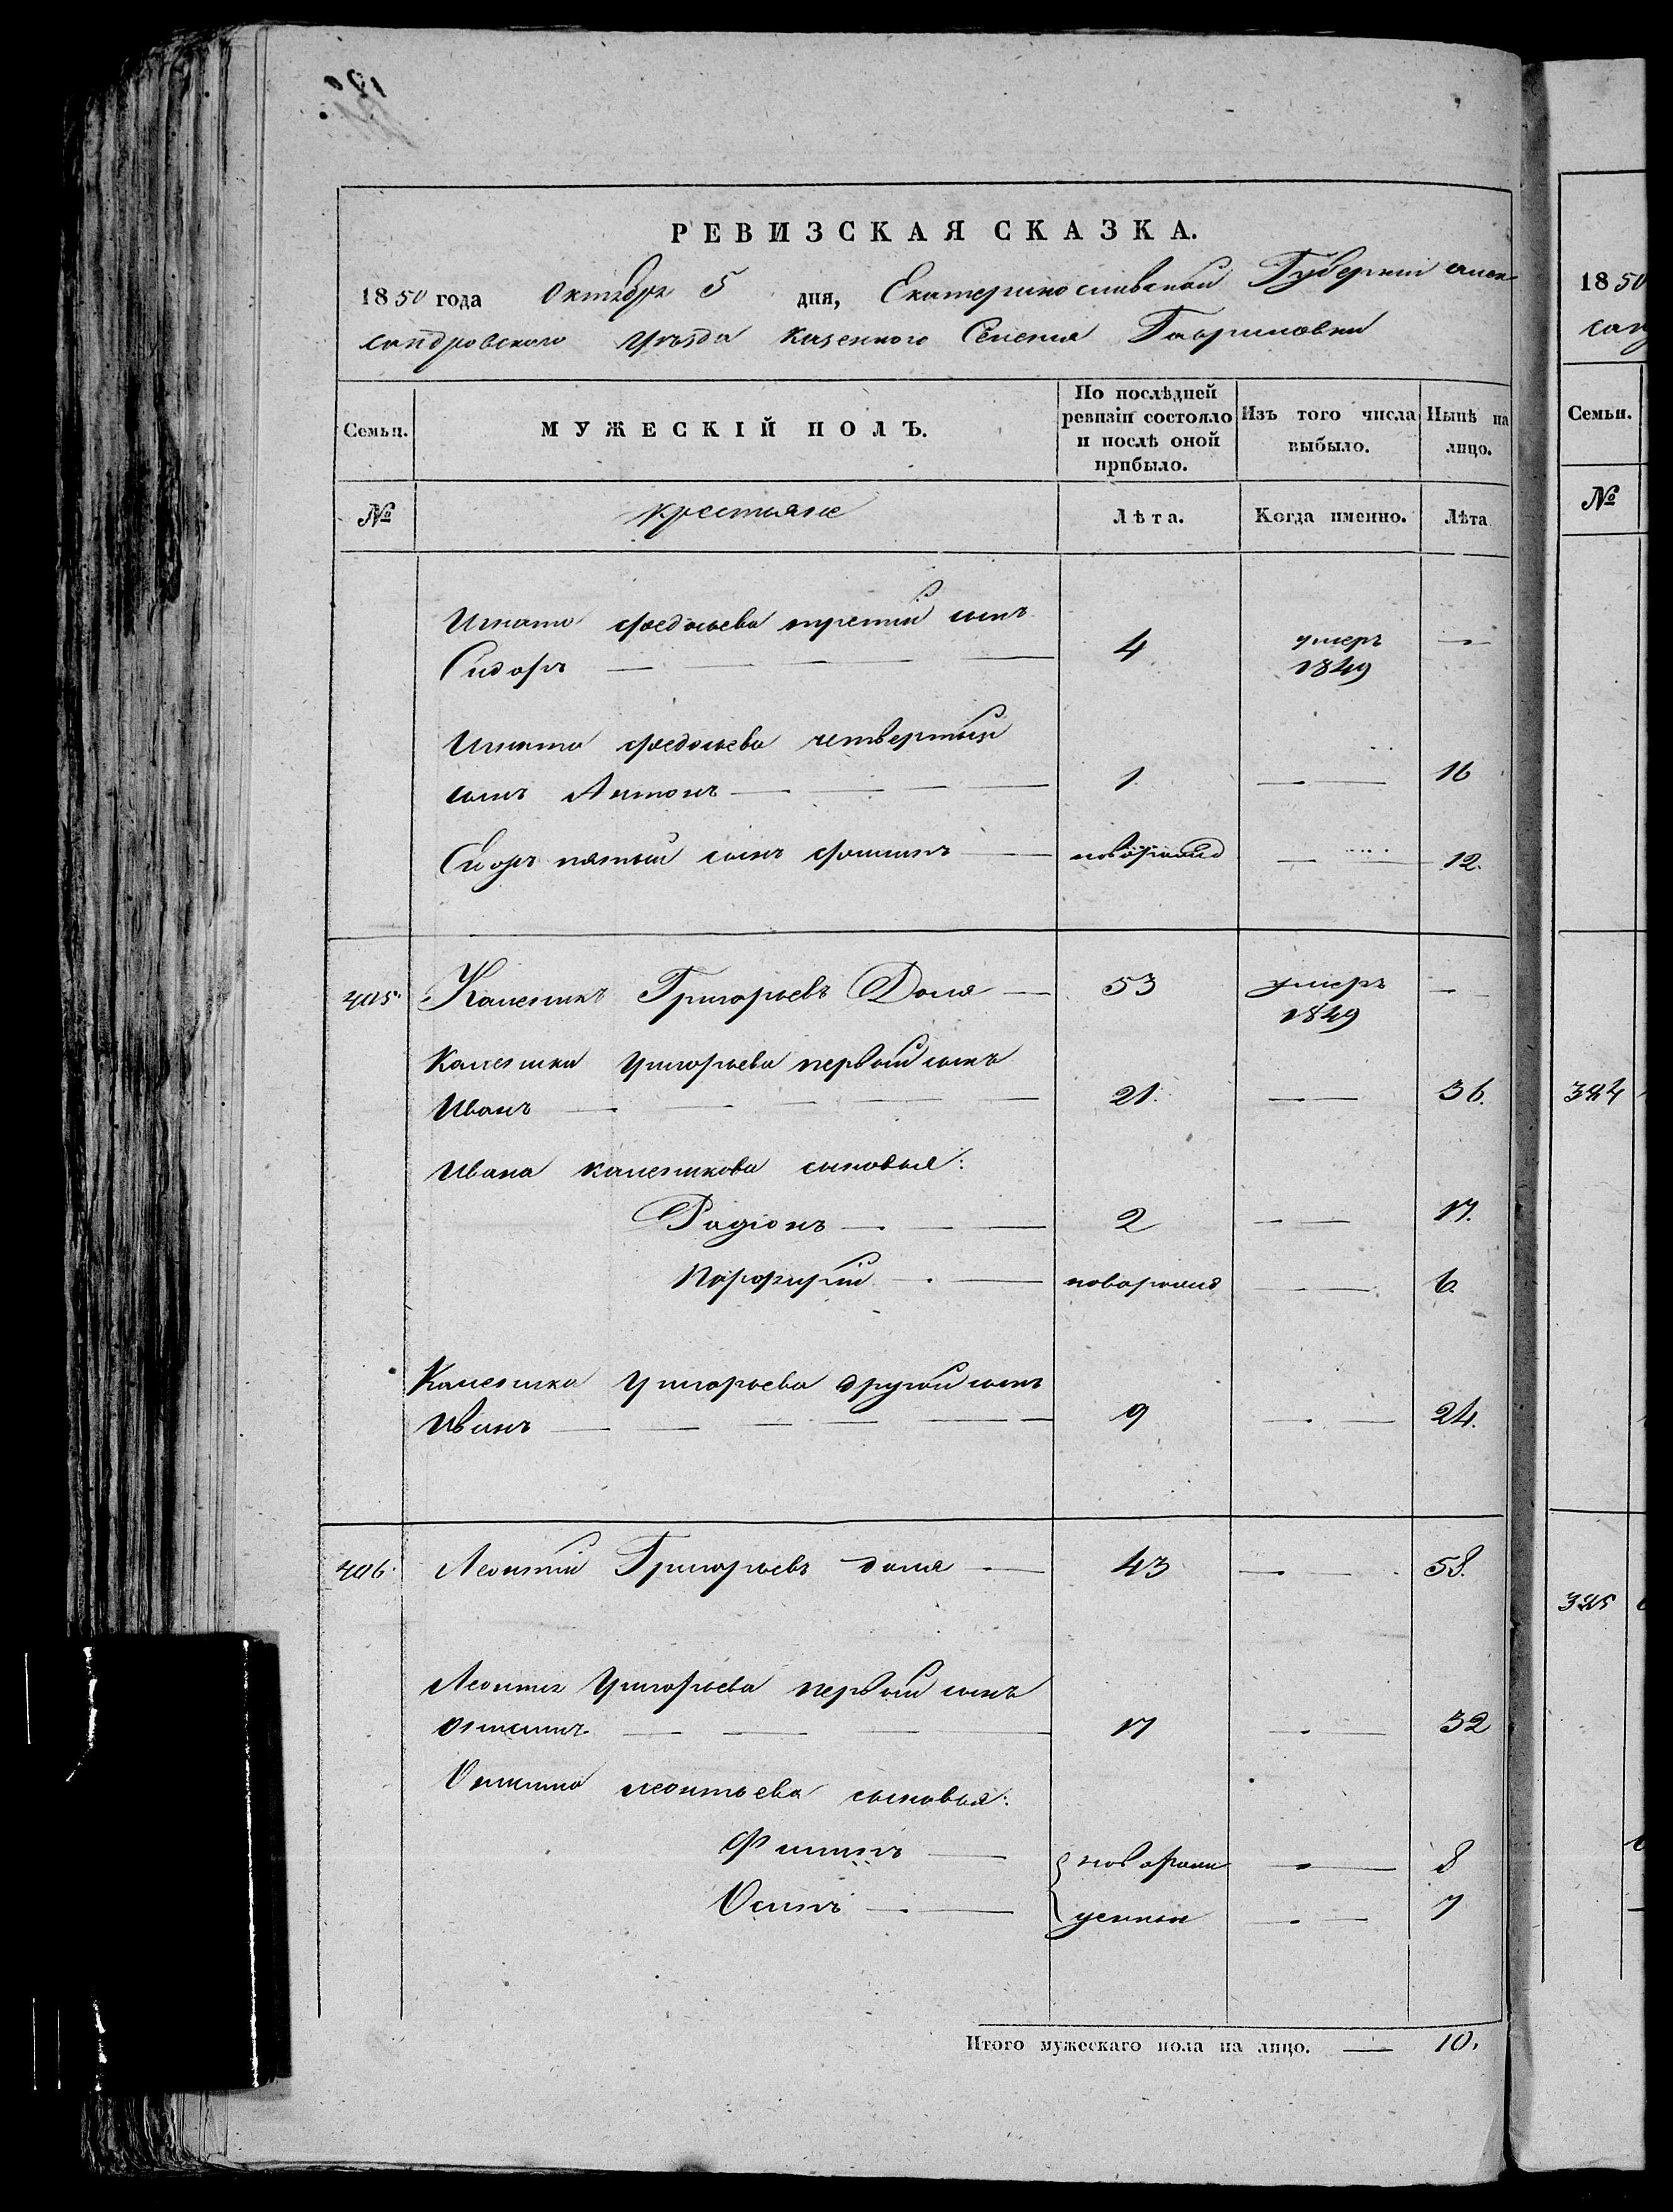 РЕВИЗСКАЯ СКАЗКА.
1850 года Октября 5 дня, Екатеринославской Губернии Алек
сандровского Уѣзда Казенного Селения Гавриловки
Семьи.
МУЖЕСКІЙ ПОЛЪ.
По послѣдней
ревизіи состояло
и послѣ оной
прибыло.
Изъ того числа
выбыло.
Нынѣ на
лицо.
№ крестьяне Лѣта. Когда именно. Лѣта
Игната третій сынъ
Сидоръ 4 умеръ 1849 —
Игната четвертый
сынъ Антонъ 1. — 16
пятый сынъ — 12.
405. Каленикъ Григорьевъ Доля 53 умеръ 1849 —
Каленика Григорьева первый сынъ
Иванъ 21. — 36.
Ивана каленикова сыновья:
Радіонъ 2 — 17.
Порфирій новорожд — 6.
Каленика Григорьева другой сынъ
Иванъ 9 — 24.
406. Леонтій Григорьевъ доля 43 — 58.
Леонтія Григорьева первый сынъ
17 — 32
леонтьева сыновья:
Филипъ новорож — 8
Осипъ денныи — 7
Итого мужескаго пола на лицо. — 10.
1850
Семьи.
№
384
385